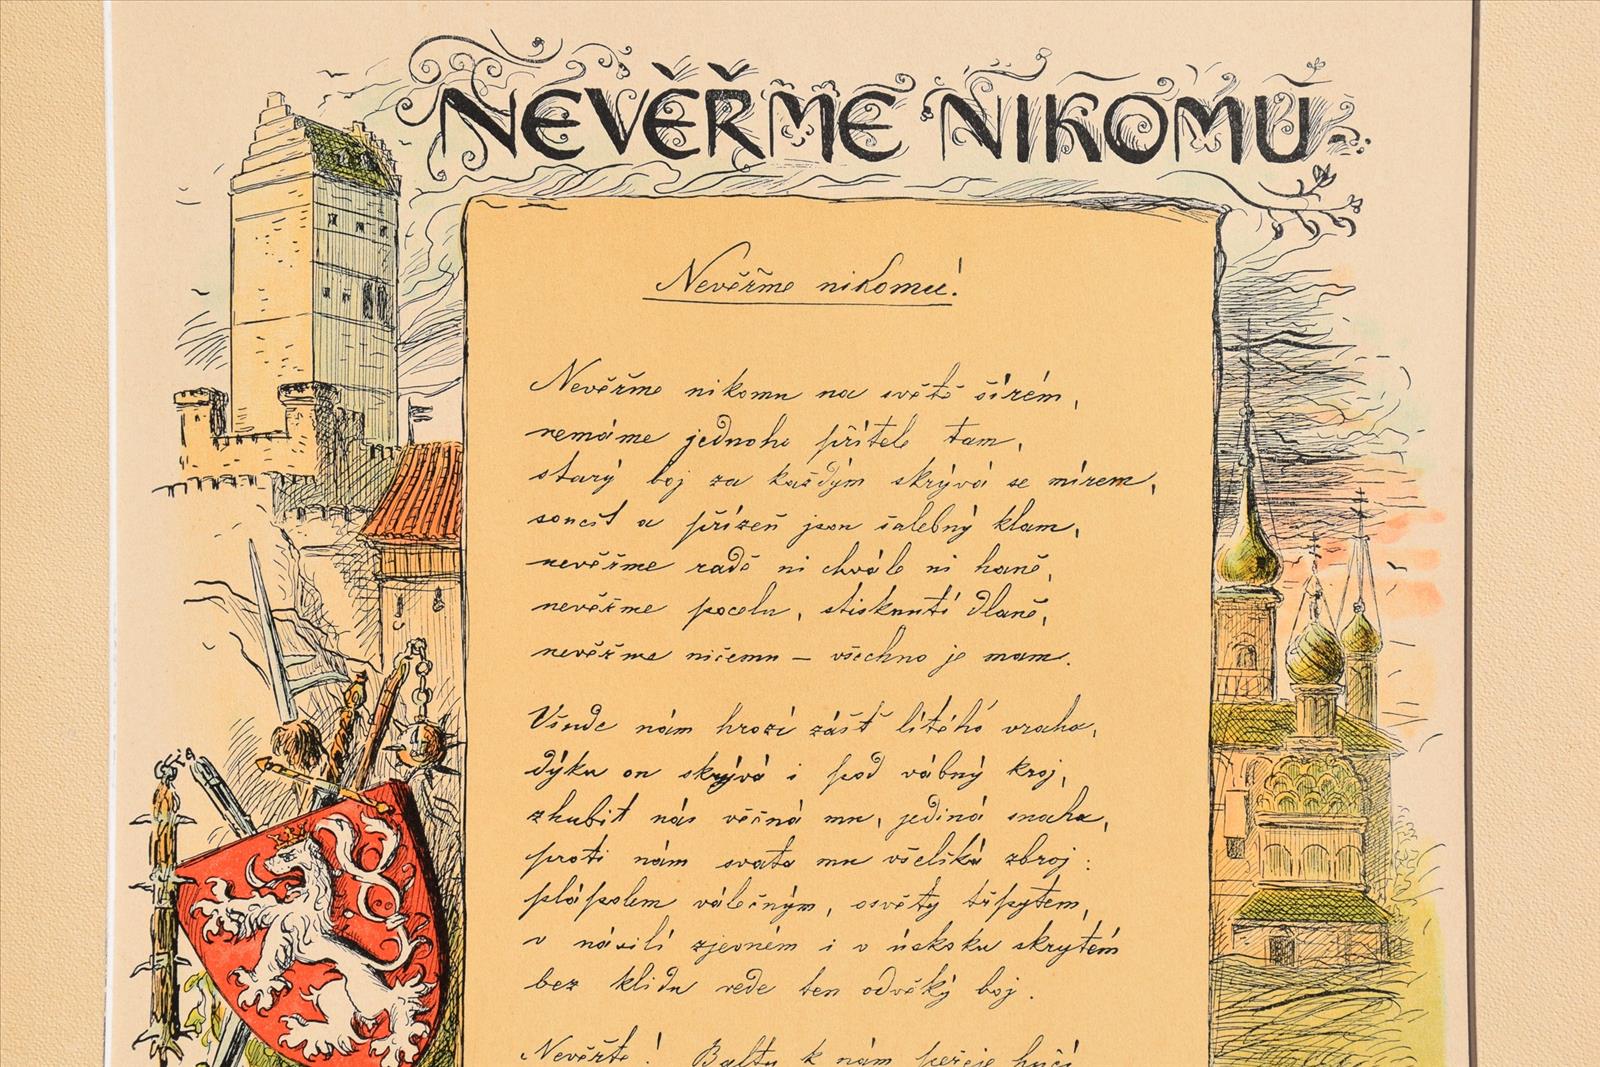 NEVĚŘME NIKOMU
Nevěřme nikomu!
Nevěřme nikomu na světě širém,
nemáme jednoho přítele tam,
starý boj za každým skrývá se mírem,
soucit a přízeň jsou šalebný klam,
nevěřme radě ni chvále ni haně,
nevěřme pocelu, stisknutí dlaně,
nevěřme ničemu – všechno je mam.
Všude nám hrozí zášť lítého vraha,
dýku on skrývá i pod vábný kroj,
zhubit nás věčná mu, jediná snaha,
proti nám svata mu všeliká zbroj:
plápolem válečným, osvěty třpytem,
v násilí zjevném i v úskoku skrytém
bez klidu vede ten odvěký boj.
Nevěřte! Baltu k nám peřeje hučí